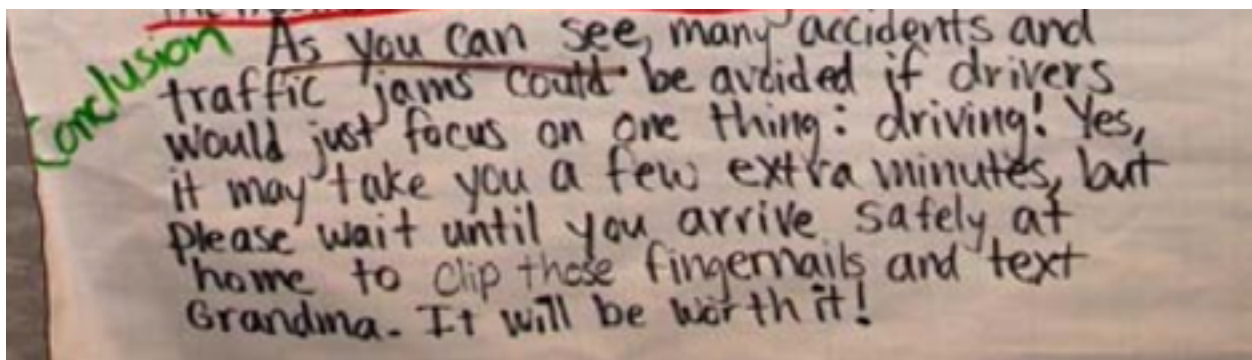 Conclusion
As you can see, many accidents and
traffic jams could be avoided if drivers
would just focus on one thing: driving! Yes,
it may take you a few extra minutes, but
please wait until you arrive safely at
home to clip those fingernails and text
Grandma. It will be worth it!